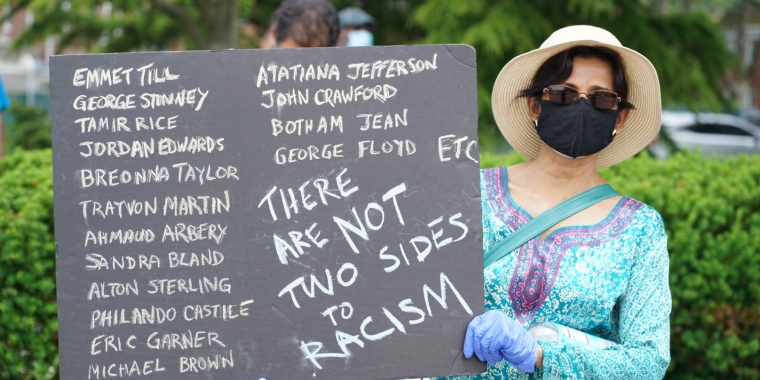 EMMET TILL
GEORGE STINNEY
TAMIR RICE
JORDAN EDWARDS
BREONNA TAYLOR
TRAYVON MARTIN
AHMAUD ARBERY
SANDRA BLAND
ALTON STERLING
PHILANDO CASTILE
ERIC GARNER
MICHAEL BROWN
ATATIANA JEFFERSON
JOHN CRAWFORD
BOTHAM JEAN
GEORGE FLOYD ETC
THERE
ARE NOT
TWO SIDES
TO
RACISM